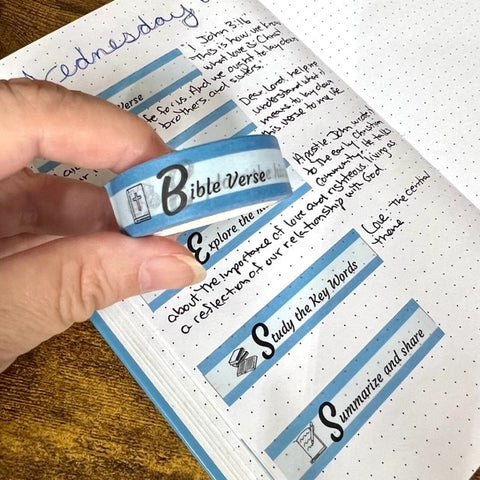 Wednesday
Verse
1 John 3:16
This is how we know
what love is: Christ
And we ought to lay down
for us.
brothers and sisters.
Dear Lord, help me
understand what it
means to lay down
this verse to my life
Bible Verse
Explore the
Apostle John wrote
to the early Christian
community. He talks
about the importance of love and righteous living as
a reflection of our relationship with God
Study the Key Words
Love the central
theme
Summarize and share